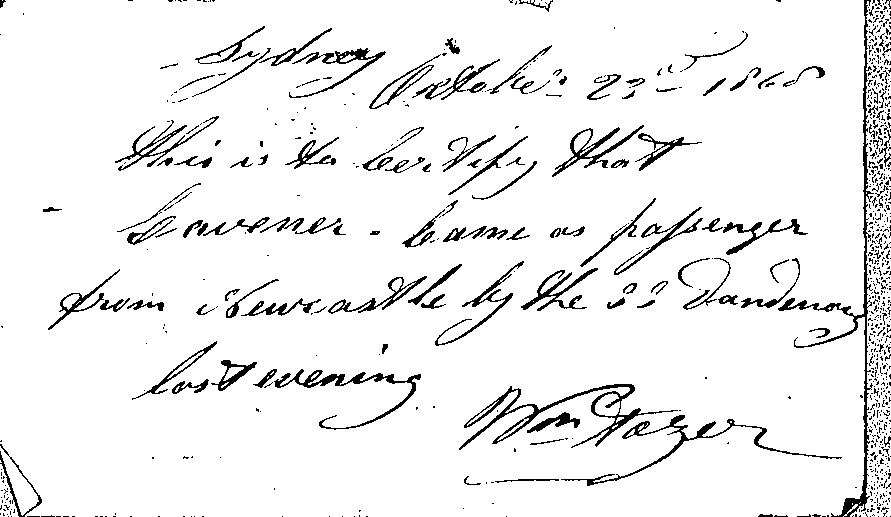 Sydney
October 23rd 1868
this is to Certify that
Cavener - Came as passenger
from Newcastle by the SS Dandenong
last evening
Wm Hazer